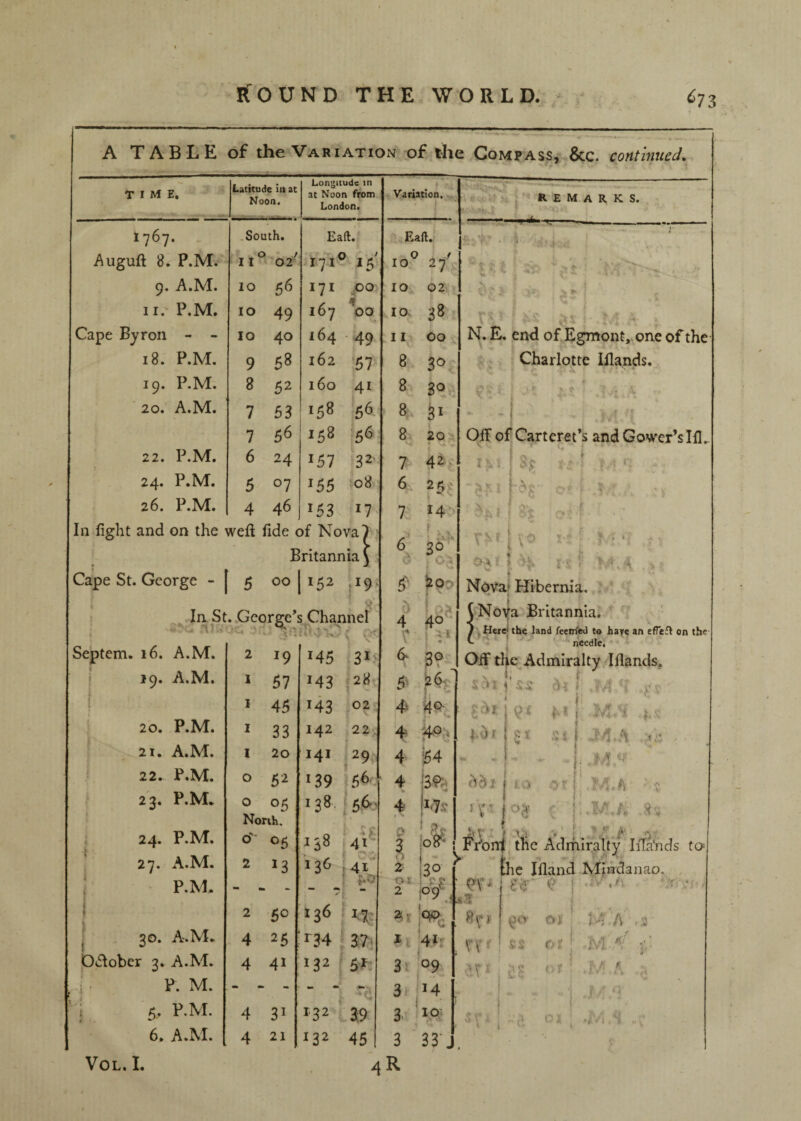 ROUND THE WORLD. 673
A TABLE of the VARIATION of the COMPASS, &c. continued.
TIME. Latitude in at Noon. Longitude in at Noon from London. Variation. REMARKS.
1767. South. Eaſt. Eaſt.
Auguſt 8. P.M. 11° 02′ 171° 15′ 10° 27′
9. A.M. 10 56 171 00 10 02
11. P.M. 10 49 167 00 10 38
Cape Byron - - 10 40 164 49 11 00 N. E. end of Egmont, one of the
18. P.M. 9 58 162 57 8 30 Charlotte Iſlands.
19. P.M. 8 52 160 41 8 30
20. A.M. 7 53 158 56 8 31
7 56 158 56 8 20 Off of Carteret's and Gower's Iſl.
22. P.M. 6 24 157 32 7 42
24. P.M. 5 07 155 08 6 25
26. P.M. 4 46 153 17 7 14
In ſight and on the weſt ſide of Nova Britannia } 6 30
Cape St. George - 5 00 152 19 5 20 Nova Hibernia.
In St. George's Channel 4 40 { Nova Britannia.
Here the land ſeemed to have an effect on the needle.
Septem. 16. A.M. 2 19 145 31 6 30 Off the Admiralty Iſlands.
19. A.M. 1 57 143 28 5 26
1 45 143 02 4 40
20. P.M. 1 33 142 22 4 40
21. A.M. 1 20 141 29 4 54
22. P.M. 0 52 139 56 4 30
23. P.M. 0 05 138 56 4 17
North.
24. P.M. 0 05 138 41 3 08 From the Admiralty Iſlands to
27. A.M. 2 13 136 41 2 30 the Iſland Mindanao.
P.M. - - - - - - 2 09
2 50 136 17 2 00
30. A.M. 4 25 134 37 1 41
October 3. A.M. 4 41 132 51 3 09
P. M. - - - - - - 3 14
5. P.M. 4 31 132 39 3 10
6. A.M. 4 21 132 45 3 33
VOL. I. 4R